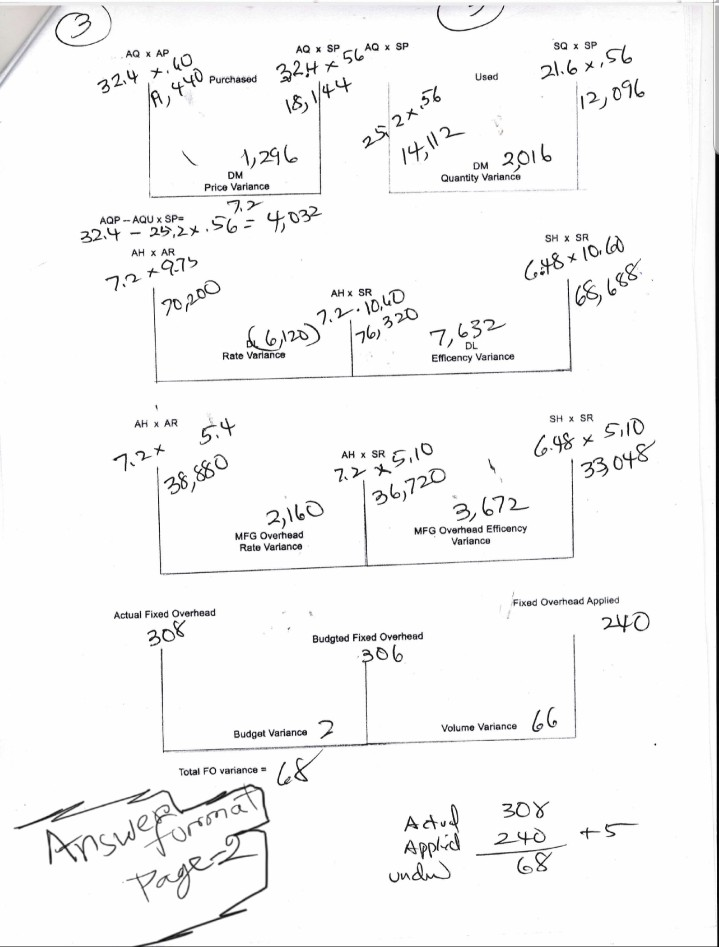 3
AQ x AP
32.4 x .60
19,440
Purchased
AQ x SP
32.4 x 56
18,144
1,296
DM
Price Variance
AQ x SP
25,2 x .56
14,112
Used
SQ x SP
21.6 x .56
12,096
DM 2,016
Quantity Variance
AQP – AQU x SP=
7.2
32.4 – 25,2 x .56 = 4,032
AH x AR
7.2 x 9.75
70,200
(6,120)
Rate Variance
AH x SR
7.2 . 10.60
76,320
7,632
DL
Efficency Variance
SH x SR
6.48 x 10.60
68,688
AH x AR
7.2 x 5.4
38,880
2,160
MFG Overhead
Rate Variance
AH x SR
7.2 x 5,10
36,720
3,672
MFG Overhead Efficency
Variance
SH x SR
6.48 x 5,10
33048
Actual Fixed Overhead
308
Budgted Fixed Overhead
306
Fixed Overhead Applied
240
Budget Variance 2
Volume Variance 66
Total FO variance = 68
Answer
format
Page-2
Actual 308
Applied 240 +5
under 68